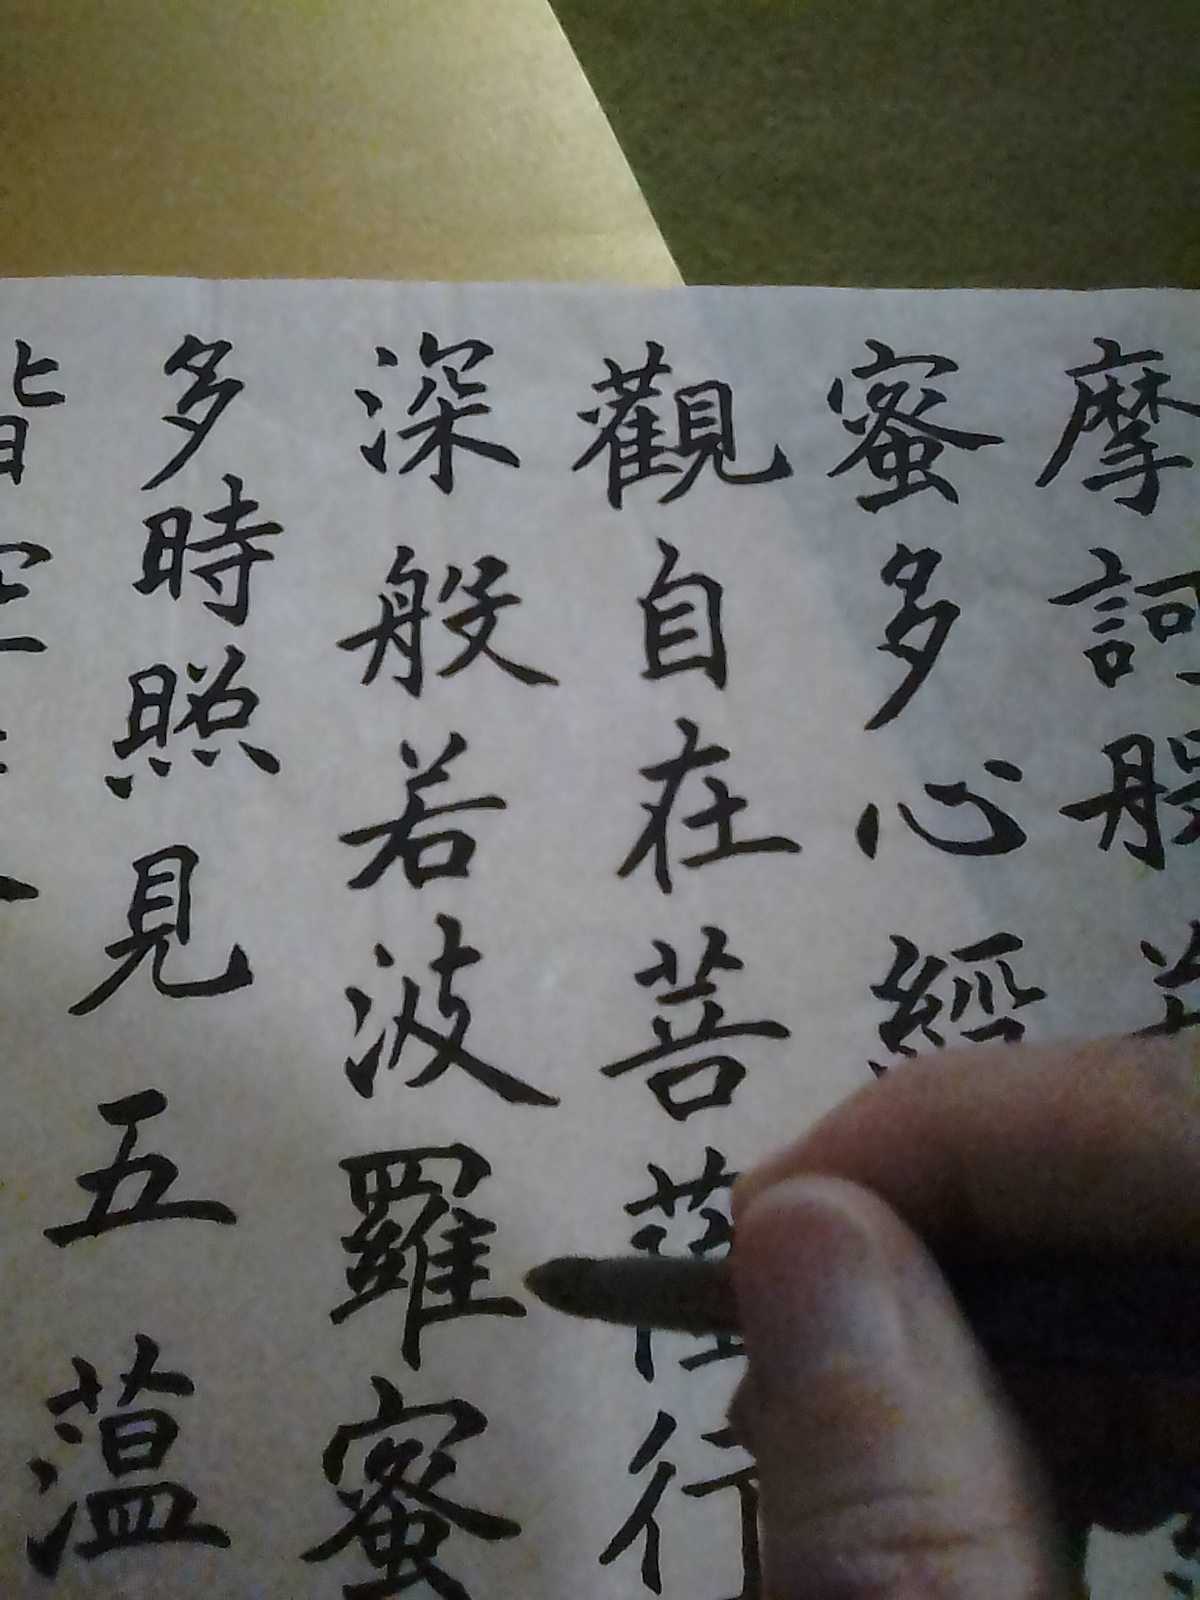 摩訶般若
蜜多心經
觀自在菩薩行
深般若波羅蜜
多時照見五薀
皆空